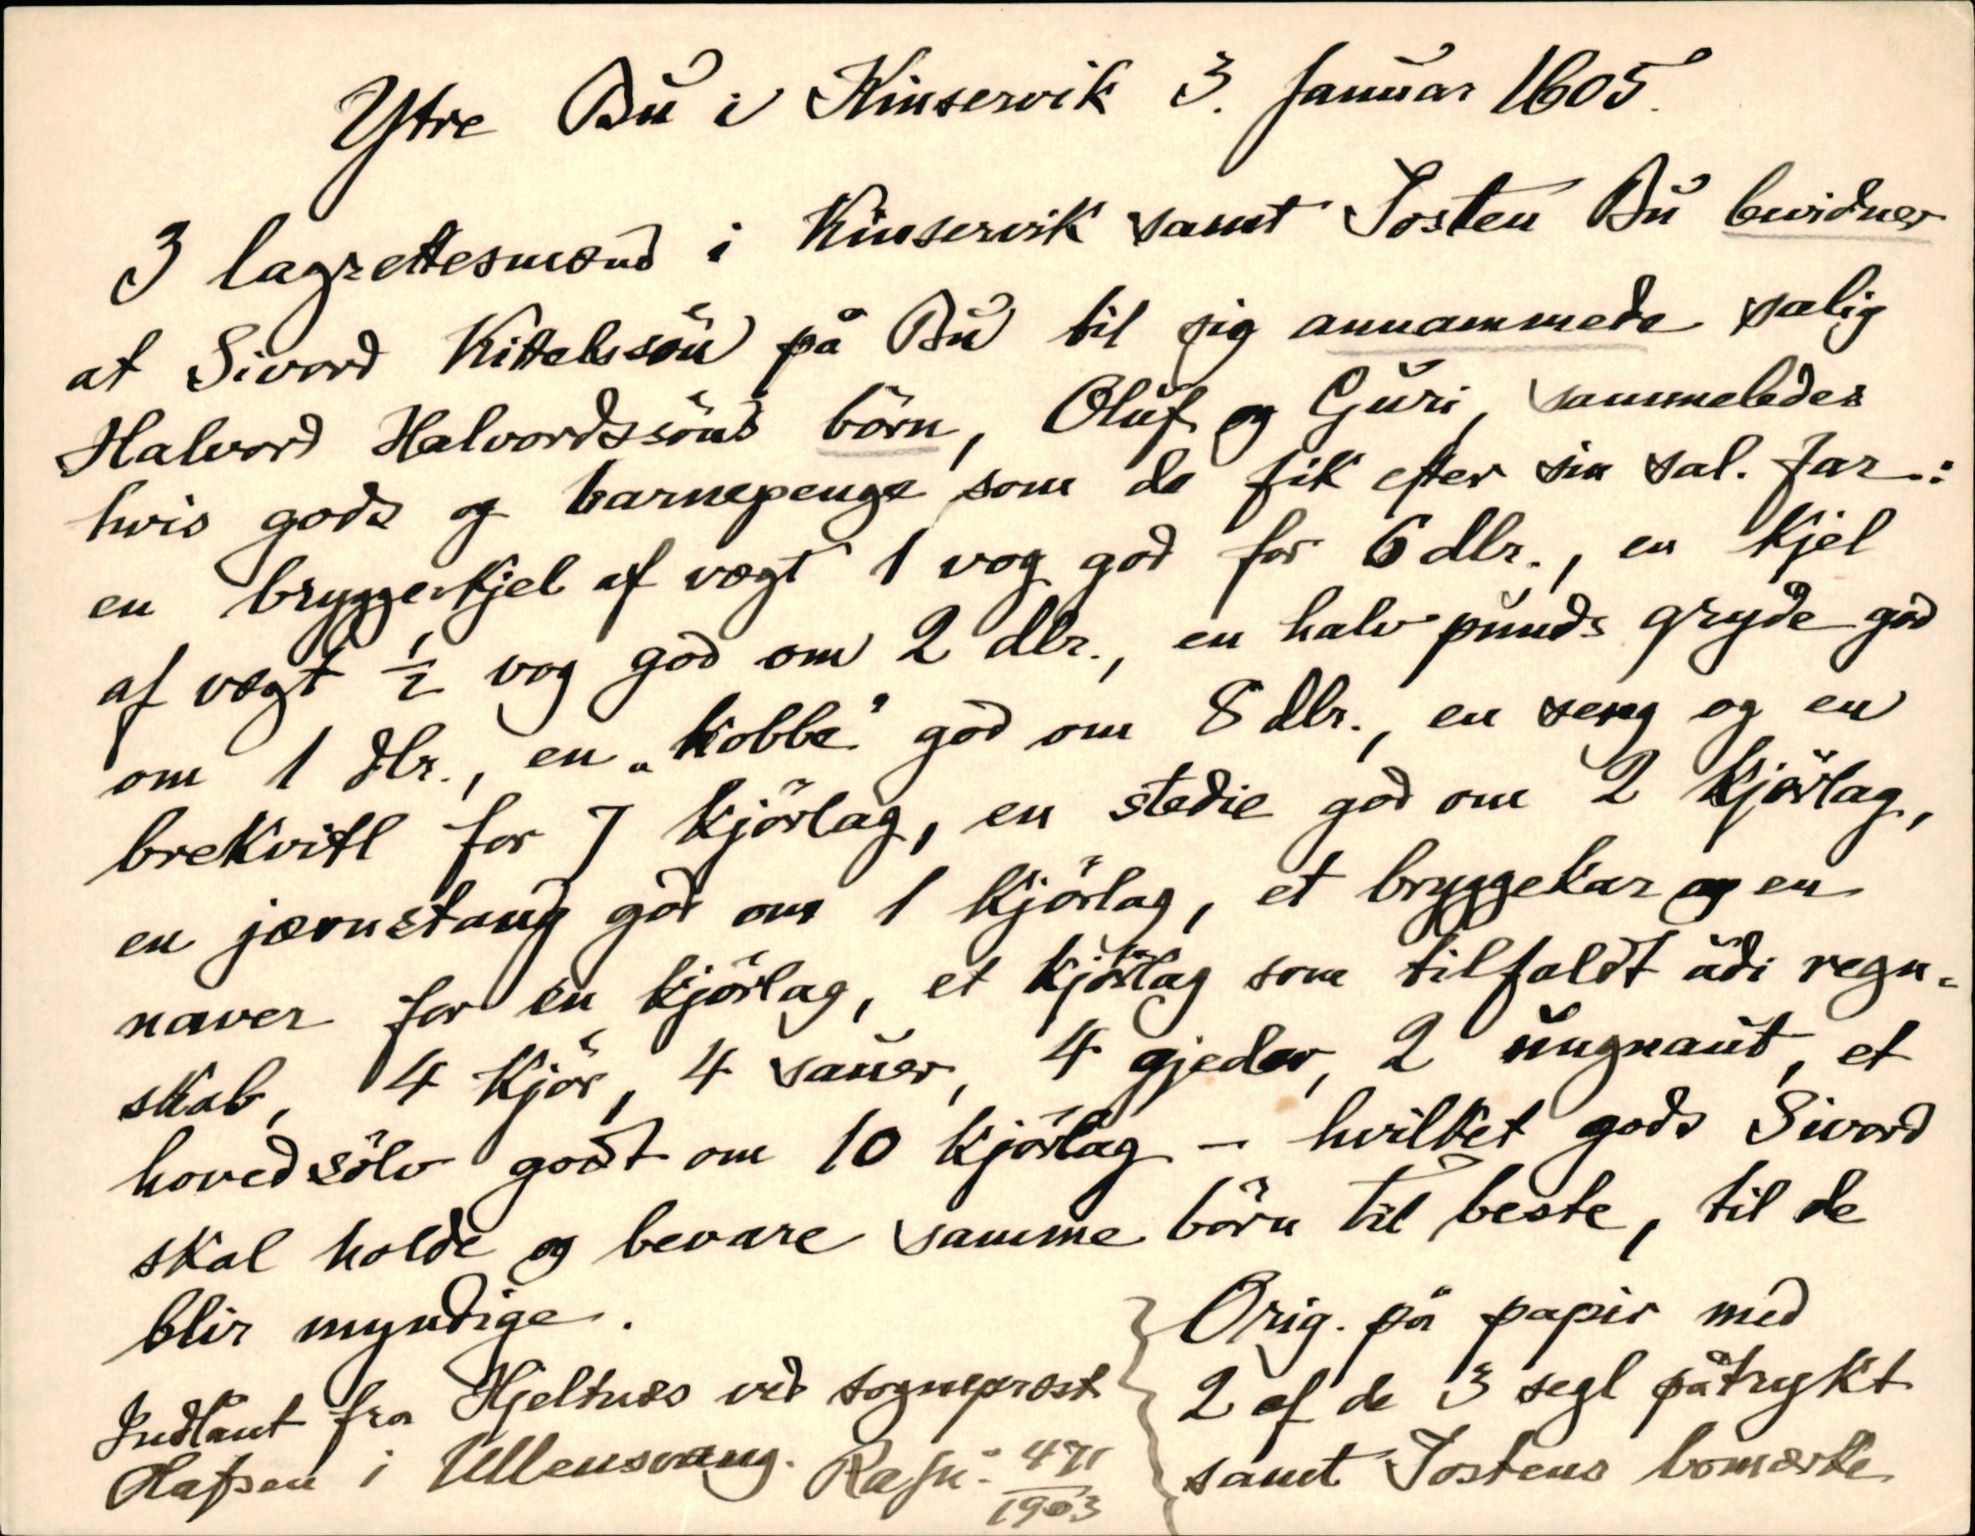 Ytre Bu i Kinservik 3. Januar 1605.
3 lagrettesmænd i Kinservik samt Josten Bu bevidner
at Sivord Kittelssön på Bu til sig annammede salig
Halvord Halvordssöns börn, Oluf og Guri, sammeledes
hvis gods og barnepenge som de fik efter sin sal. far:
en bryggerkjel af vægt 1 vog god for 6 dlr., en kjel
af vægt ½ vog god om 2 dlr., en halvpunds gryde god
om 1 dlr., en „kobbe" god om 8 dlr., en seng og en
brekvitl for 7 kjörlag, en stedie god om 2 kjörlag,
en jærnstang god om 1 kjörlag, et bryggekar og en
naver for én kjörlag, et kjörlag som tilfaldt udi regn-
skab, 4 kjör, 4 sauer, 4 gjeder, 2 ungnaut, et
hovedsölv godt om 10 kjörlag – hvilket gods Sivord
skal holde og bevare samme börn til beste, til de
blir myndige.
Indlånt fra Hjeltnæs ved sogneprest
Olafsen i Ullensvang. Rafn. 471/1903
Orig. på papir med
2 af de 3 segl påtrykt
samt Jostens bomærke